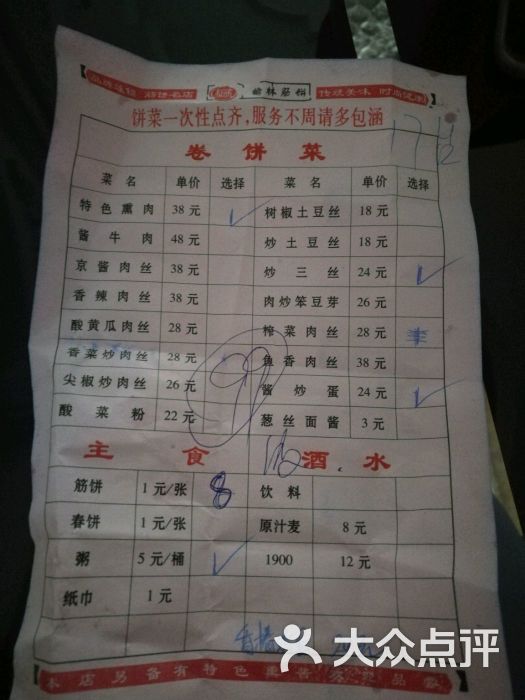 品质连锁 筋饼名店 榆林筋饼 传统美味 时尚健康
饼菜一次性点齐,服务不周请多包涵
卷饼菜
菜名 单价 选择 菜名 单价 选择
特色熏肉 38元 树椒土豆丝 18元
酱牛肉 48元 炒土豆丝 18元
京酱肉丝 38元 炒三丝 24元
香辣肉丝 38元 肉炒笨豆芽 26元
酸黄瓜肉丝 28元 榨菜肉丝 28元
香菜炒肉丝 28元 鱼香肉丝 38元
尖椒炒肉丝 26元 酱炒蛋 24元
酸菜粉 22元 葱丝面酱 3元
99
主食 酒水
筋饼 1元/张 8 饮料
春饼 1元/张 原汁麦 8元
粥 5元/桶 1900 12元
纸巾 1元
大众点评
本店另备有特色